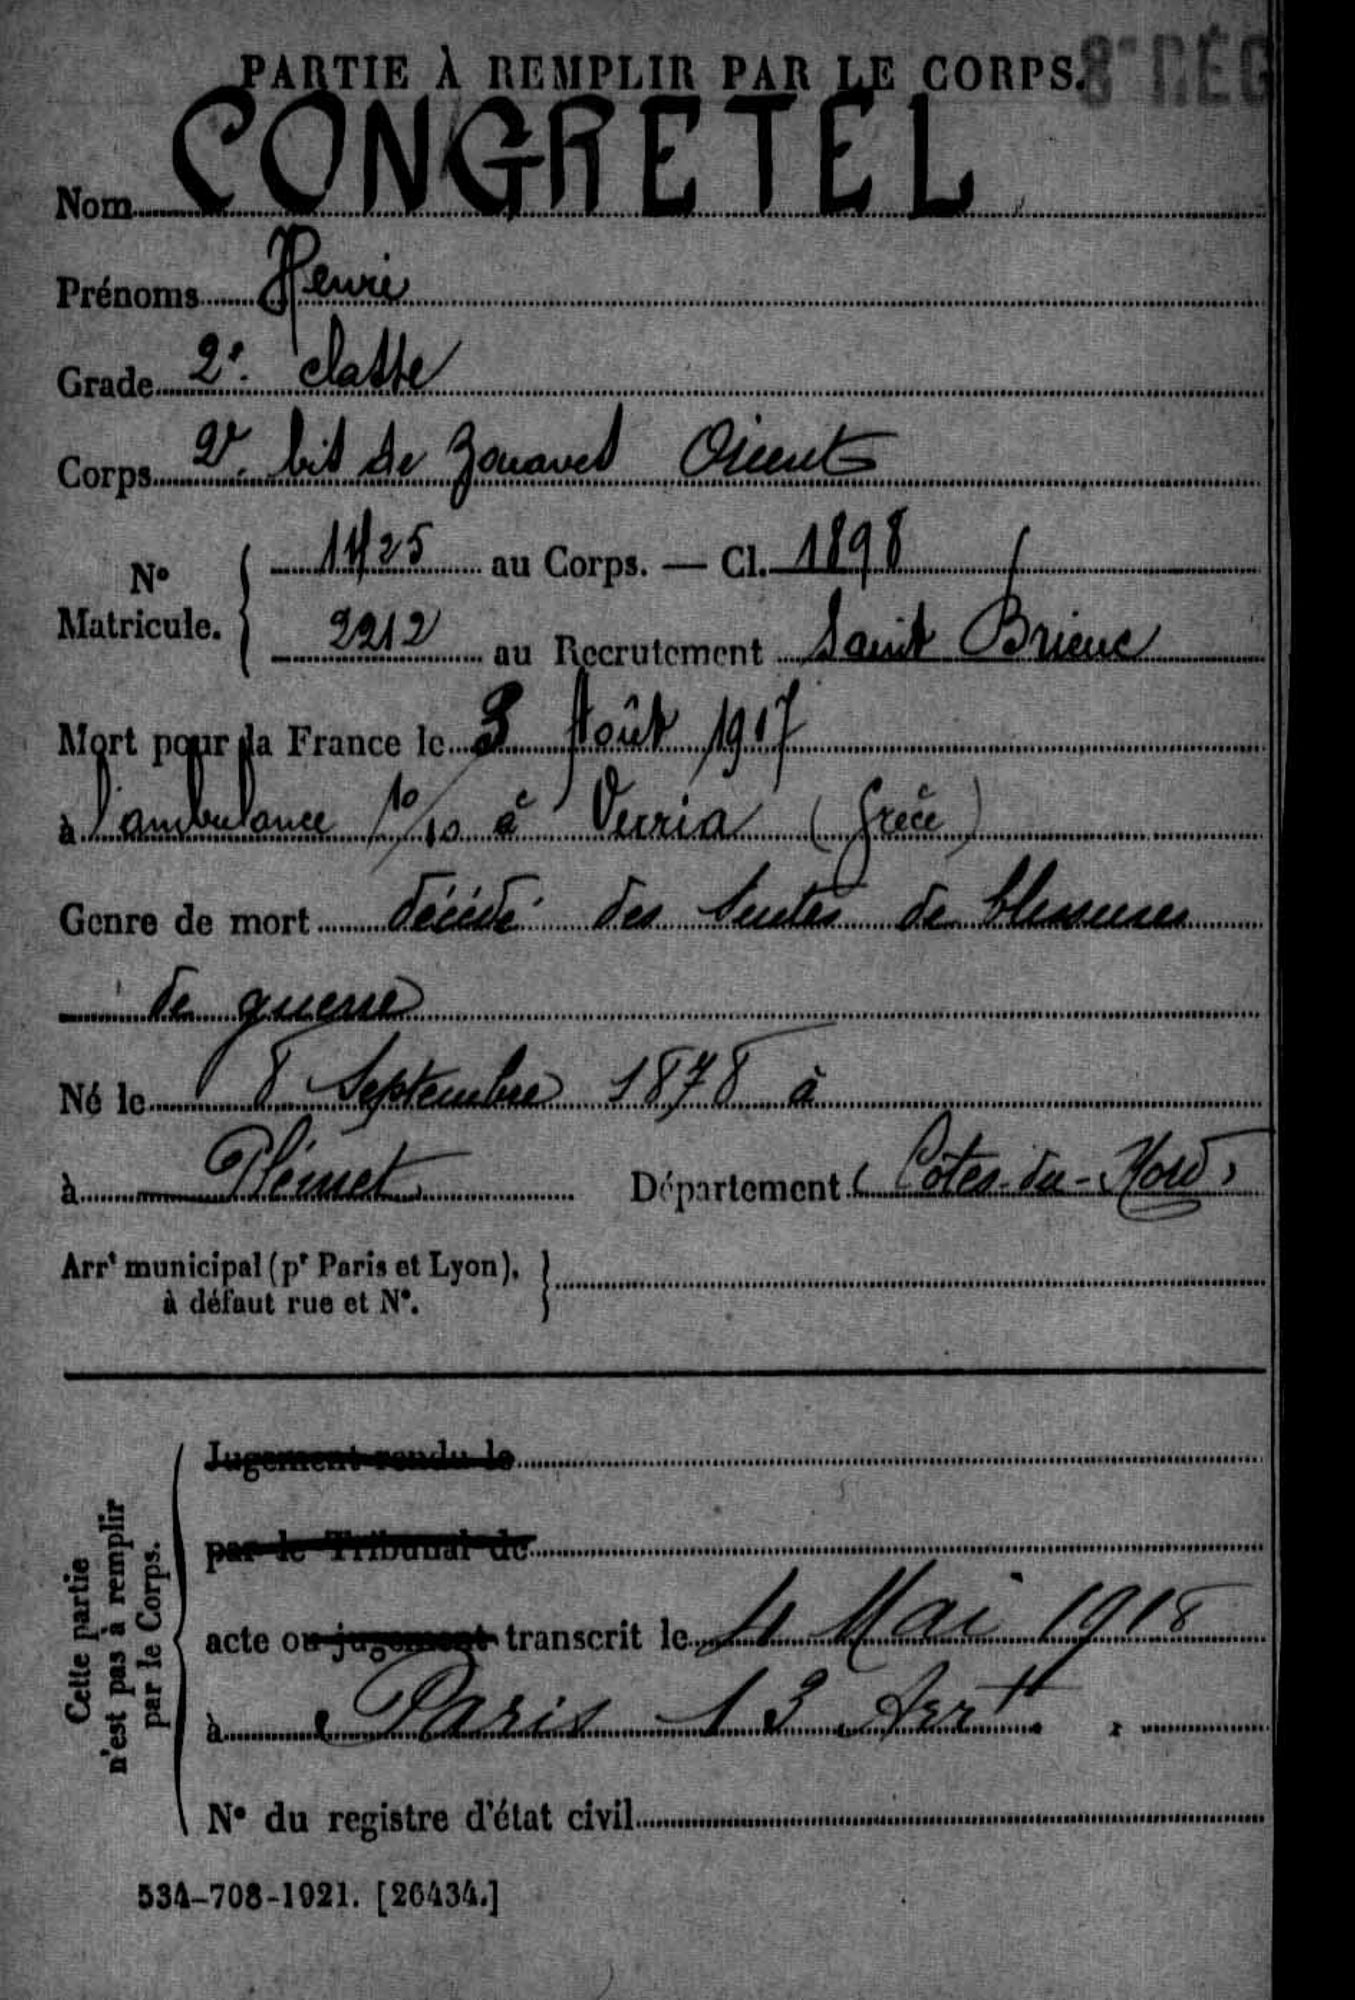 PARTIE À REMPLIR PAR LE CORPS. 8e RÉG
Nom CONGRETEL
Prénoms Henri
Grade 2e classe
Corps 2e bis de Zouaves Orient
No Matricule. 11425 au Corps. — Cl. 1898
2212 au Recrutement Saint Brieuc
Mort pour la France le 3 Août 1917
à l'ambulance 10/10 à Verria (Grèce)
Genre de mort décédé des suites de blessures
de guerre
Né le 8 Septembre 1878 à
à Plémet Département Côtes-du-Nord
Arrt municipal (pr Paris et Lyon),
à défaut rue et No.
Cette partie
n'est pas à remplir
par le Corps.
Jugement rendu le
par le Tribunal de
acte ou jugement transcrit le 4 Mai 1918
à Paris 13 Arrt
No du registre d'état civil
534-708-1921. [26434.]